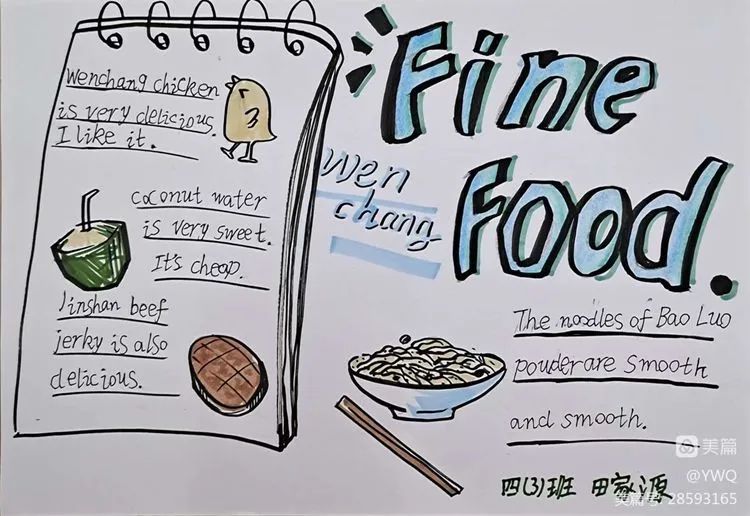 Fine
Food.
Wen
chang
Wenchang chicken
is very delicious.
I like it.
coconut water
is very sweet.
It's cheap.
Jinshan beef
jerky is also
delicious.
The noodles of Bao Luo
powder are smooth
and smooth.
四(3)班 田家源
美篇
@YWQ
美篇号 28593165